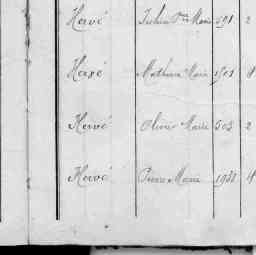 Hervé Marie 591 2
Hervé Mathurin Marie 1501
Hervé Olivier Marie 503 2
Hervé Pierre Marie